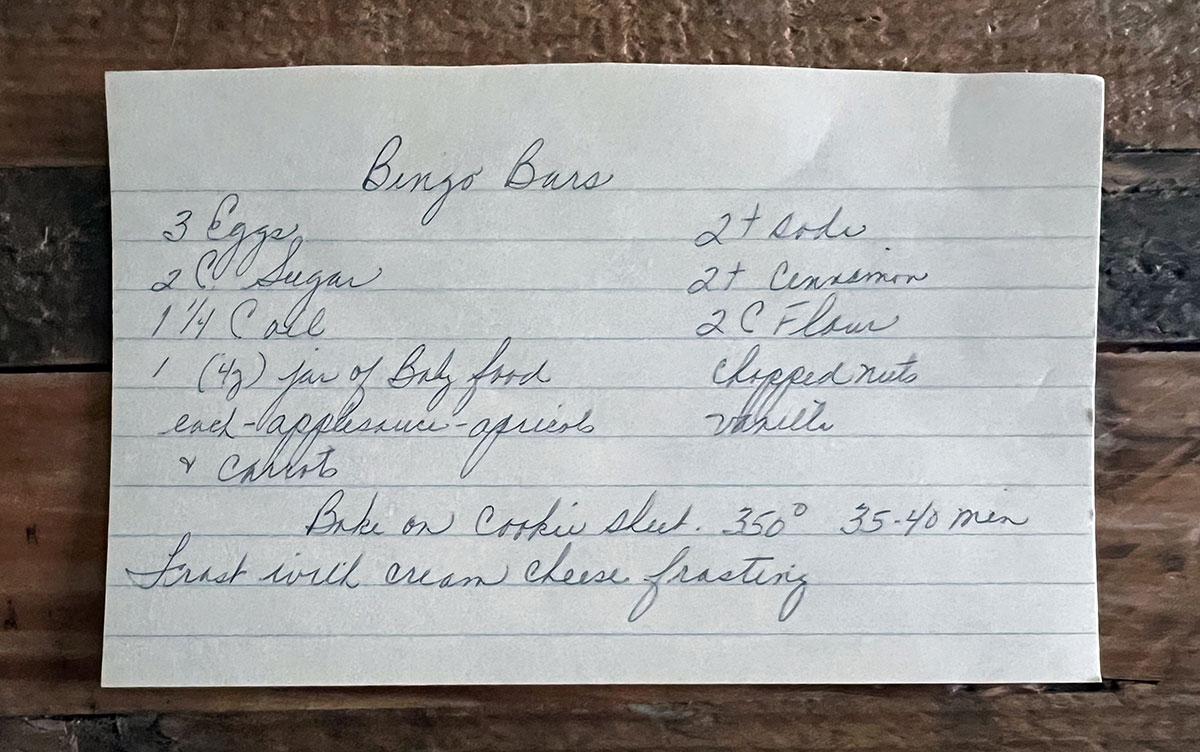 Bingo Bars
3 Eggs
2 C. Sugar
1 1/4 C oil
1 (4z) jar of Baby food
each - applesauce - apricots
& carrots
2 t soda
2 t Cinnamon
2 C Flour
Chopped nuts
vanilla
Bake on Cookie sheet. 350° 35-40 min
Frost with cream cheese frosting